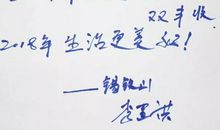 双丰收
2018年 生活更美好!
——锡铁山
李玉洪